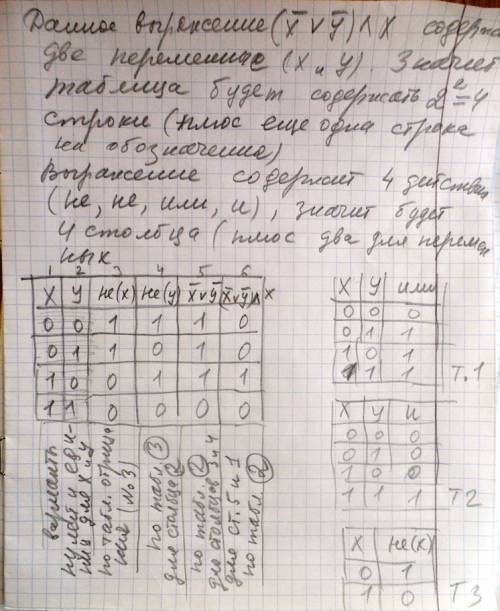 Данное выражение (X̅ ∨ Y̅) ∧ X содержа
две переменные (X и Y). Значит
таблица будет содержать 2² = 4
строки (плюс еще одна строка
на обозначение)
Выражение содержит 4 действия
(не, не, или, и), значит будет
4 столбца (плюс два для перемен
ных
1 2 3 4 5 6
X Y не(X) не(Y) X̅∨Y̅ (X̅∨Y̅)∧X
0 0 1 1 1 0
0 1 1 0 1 0
1 0 0 1 1 1
1 1 0 0 0 0
варианты
нулей и еди-
ниц для X и Y
по табл. отрица
ния (№3)
по табл 3
для столбца 2
по табл
для столбцов 3 и 4
для ст. 5 и 1
по табл 2
X Y или
0 0 0
0 1 1
1 0 1
1 1 1 Т.1
X Y и
0 0 0
0 1 0
1 0 0
1 1 1 Т2
X не(X)
0 1
1 0 Т3